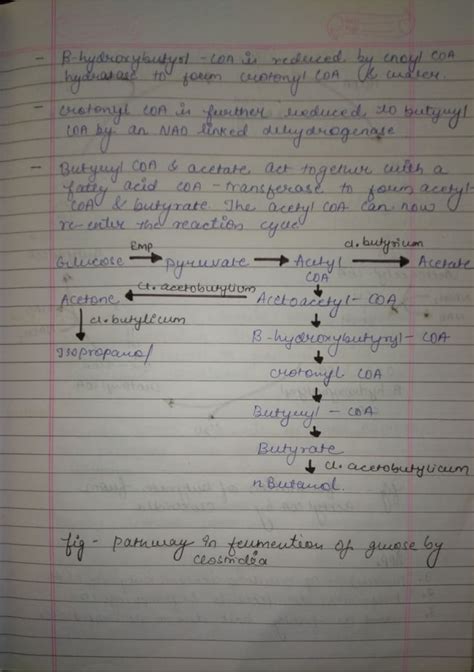 - B-hydroxybutyryl - COA is reduced by enoyl COA
hydratase to form crotonyl COA & water.
- crotonyl COA is further reduced to butyryl
COA by an NAD linked dehydrogenase
- Butyryl COA & acetate act together with a
fatty acid COA - transferase to form acetyl-
COA & butyrate. The acetyl COA can now
re-enter the reaction cycle
Glucose EMP → pyruvate → Acetyl COA cl. butyrium → Acetate
Acetone ← cl. acetobutylium Acetoacetyl - COA
↓ cl. butylicum ↓
Isopropanol B-hydroxybutyryl - COA
↓
crotonyl COA
↓
Butyryl - COA
↓
Butyrate
↓ cl. acetobutylicum
n Butanol.
fig - pathway in fermention of glucose by
closmdia